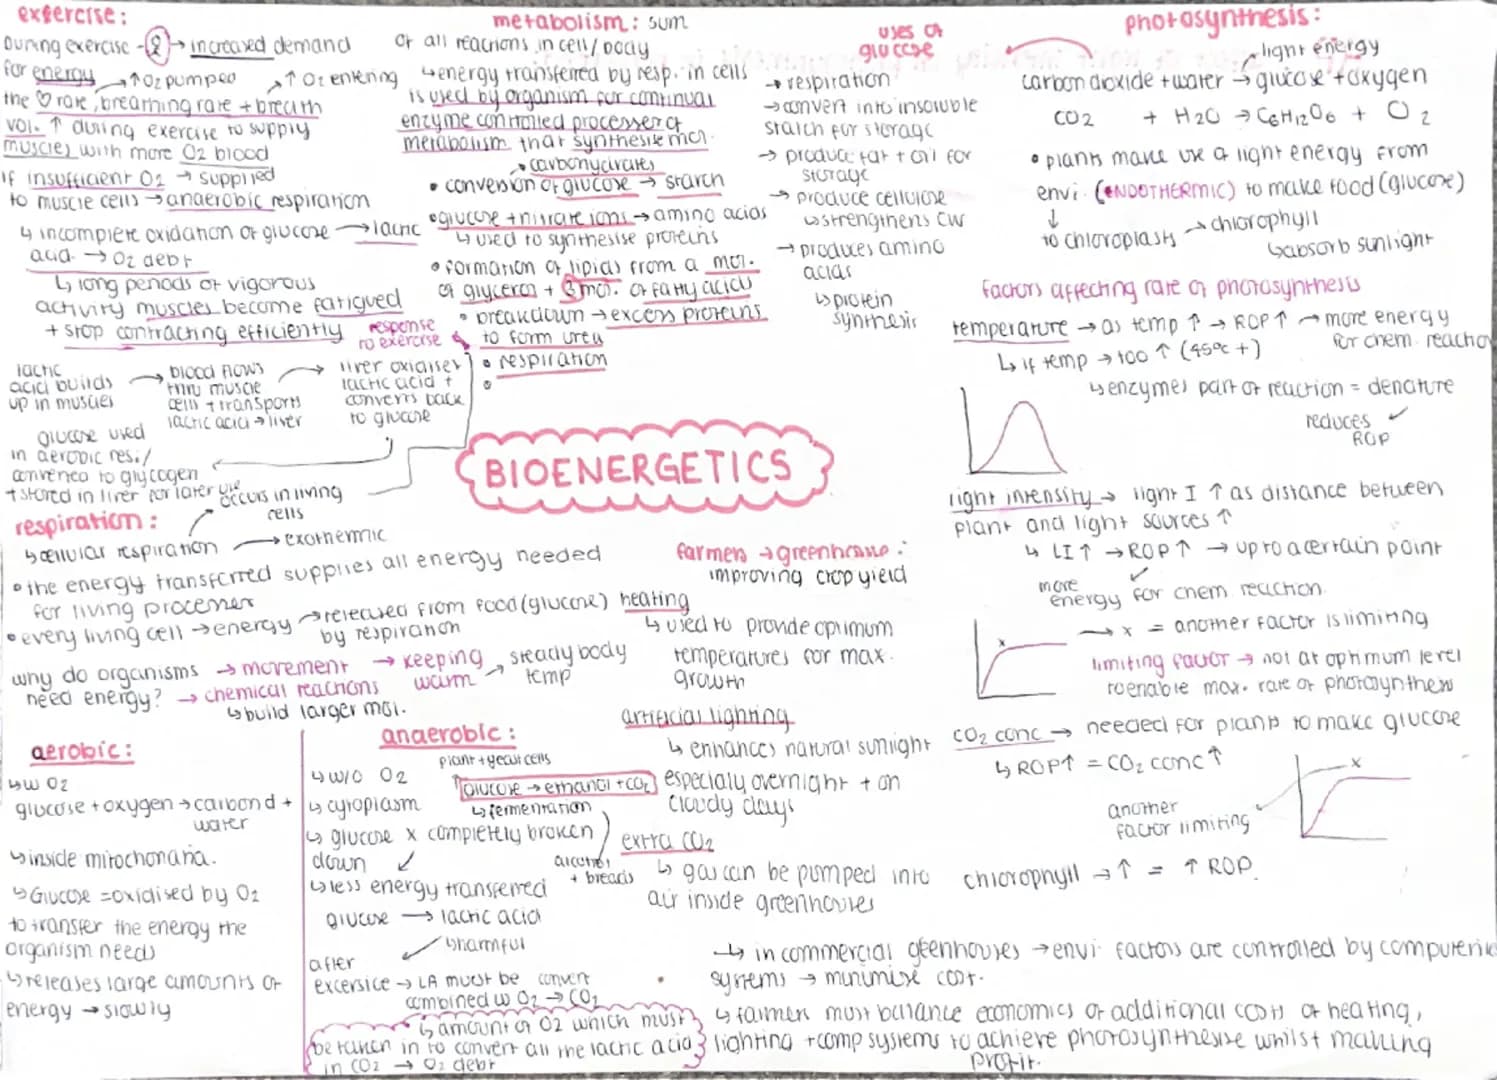 exfercise:
During exercise - → increased demand
for energy → ↑ O2 pumped ↑ O2 entering
the ♡ rate, breathing rate + breath
vol. ↑ during exercise to supply
muscles with more O2 blood
if insufficient O2 → supplied
to muscle cells → anaerobic respiration
↳ incomplete oxidation of glucose → lactic
acid → O2 debt
↳ long periods of vigorous
activity muscles become fatigued
+ stop contracting efficiently
response
to exercise
lactic
acid builds
up in muscles
→ blood flows
thru muscle
cells + transports
lactic acid → liver
→ liver oxidises
lactic acid +
converts back
to glucose
glucose used
in aerobic res./
converted to glycogen
+ stored in liver for later use
metabolism: sum
of all reactions in cell/body
↳ energy transferred by resp. in cells
is used by organism for continual
enzyme controlled processes of
metabolism that synthesise mol.
• carbohydrates
• conversion of glucose → starch
• glucose + nitrate ions → amino acids
↳ used to synthesise proteins
• formation of lipids from a mol.
of glycerol + 3 mol. of fatty acids
• breakdown → excess proteins
to form urea
• respiration
•
uses of
gluccse
→ respiration
→ convert into insoluble
starch for storage
→ produce fat + oil for
storage
→ produce cellulose
↳ strengthens CW
→ produces amino
acids
↳ protein
synthesis
photosynthesis:
light energy
carbon dioxide + water → glucose + oxygen
CO2 + H2O → C6H12O6 + O2
• plants make use of light energy from
envi. (ENDOTHERMIC) to make food (glucose)
↓
to chloroplasts → chlorophyll
↳ absorb sunlight
factors affecting rate of photosynthesis
temperature → as temp ↑ → ROP ↑ → more energy
for chem. reaction
↳ if temp → too ↑ (45°c +)
↳ enzymes part of reaction = denature
reduces
ROP
light intensity → light I ↑ as distance between
plant and light sources ↑
↳ LI ↑ → ROP ↑ → up to a certain point
more
energy for chem. reaction.
x
→ x = another factor is limiting
limiting factor → not at optimum level
to enable max. rate of photosynthesis
CO2 conc → needed for plants to make glucose
↳ ROP ↑ = CO2 conc ↑
x
another
factor limiting
chlorophyll → ↑ = ↑ ROP.
BIOENERGETICS
respiration:
occurs in living
cells
↳ cellular respiration → exothermic
• the energy transferred supplies all energy needed
for living processes
• every living cell → energy → released from food (glucose)
by respiration
why do organisms
need energy?
→ movement
→ chemical reactions
↳ build larger mol.
→ keeping
warm
→ steady body
temp
farmers → greenhouse:
improving crop yield
heating
↳ used to provide optimum
temperatures for max.
growth
artificial lighting
↳ enhances natural sunlight
especially overnight + on
cloudy days
extra CO2
↳ gas can be pumped into
air inside greenhouses
aerobic:
↳ w O2
glucose + oxygen → carbon d +
water
↳ inside mitochondria.
↳ Glucose = oxidised by O2
to transfer the energy the
organism needs
↳ releases large amounts of
energy → slowly
anaerobic:
↳ w/o O2
↳ cytoplasm
plant + yeast cells
glucose → ethanol + CO2
↳ fermentation
↳ glucose x completely broken
down
alcohol
+ breads
↳ less energy transferred
glucose → lactic acid
↳ harmful
after
excersice → LA must be convert
combined w O2 → CO2
↳ amount of O2 which must
be taken in to convert all the lactic acid
in CO2 → O2 debt
↳ in commercial geenhouses → envi. factors are controlled by computerise
systems → minimise cost.
↳ farmers must balance economics of additional costs of heating,
lighting + comp systems to achieve photosynthesise whilst making
profit.